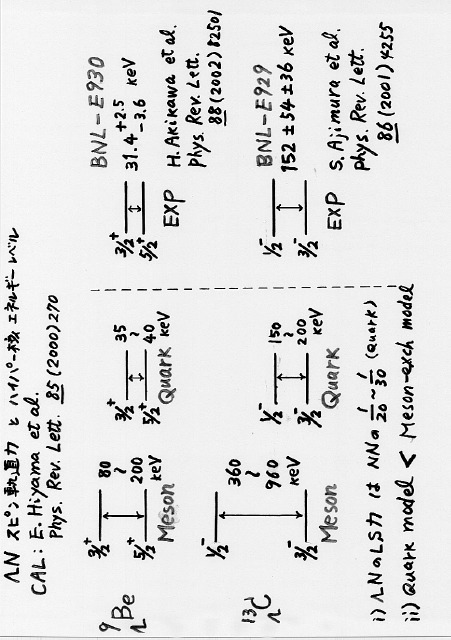 ΛN スピン軌道力 と ハイパー核 エネルギーレベル
CAL: E. Hiyama et al.
Phys. Rev. Lett. 85 (2000) 270
BNL-E930
9ΛBe
3/2+ 80 ~ 200 keV 5/2+ Meson
3/2+ 35 ~ 40 keV 5/2+ Quark
3/2+ 5/2+ EXP
31.4 +2.5 -3.6 keV
H. Akikawa et al.
Phys. Rev. Lett.
88 (2002) 82501
BNL-E929
13ΛC
1/2- 360 ~ 960 keV 3/2- Meson
1/2- 150 ~ 200 keV 3/2- Quark
1/2- 3/2- EXP
152 ± 54 ± 36 keV
S. Ajimura et al.
Phys. Rev. Lett.
86 (2001) 4255
i) ΛNのLS力 は NNの 1/20 ~ 1/30 (quark)
ii) quark model < Meson-exch model